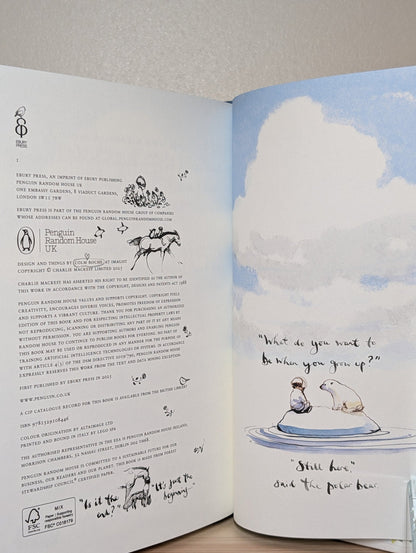 EBURY
PRESS
1
EBURY PRESS, AN IMPRINT OF EBURY PUBLISHING
PENGUIN RANDOM HOUSE UK
ONE EMBASSY GARDENS, 8 VIADUCT GARDENS,
LONDON SW11 7BW
EBURY PRESS IS PART OF THE PENGUIN RANDOM HOUSE GROUP OF COMPANIES
WHOSE ADDRESSES CAN BE FOUND AT GLOBAL.PENGUINRANDOMHOUSE.COM
Penguin
Random House
UK
DESIGN AND THINGS BY COLM ROCHE AT IMAGIST
COPYRIGHT © CHARLIE MACKESY LIMITED 2025
CHARLIE MACKESY HAS ASSERTED HIS RIGHT TO BE IDENTIFIED AS THE AUTHOR OF
THIS WORK IN ACCORDANCE WITH THE COPYRIGHT, DESIGNS AND PATENTS ACT 1988
PENGUIN RANDOM HOUSE VALUES AND SUPPORTS COPYRIGHT. COPYRIGHT FUELS
CREATIVITY, ENCOURAGES DIVERSE VOICES, PROMOTES FREEDOM OF EXPRESSION
AND SUPPORTS A VIBRANT CULTURE. THANK YOU FOR PURCHASING AN AUTHORIZED
EDITION OF THIS BOOK AND FOR RESPECTING INTELLECTUAL PROPERTY LAWS BY
NOT REPRODUCING, SCANNING OR DISTRIBUTING ANY PART OF IT BY ANY MEANS
WITHOUT PERMISSION. YOU ARE SUPPORTING AUTHORS AND ENABLING PENGUIN
RANDOM HOUSE TO CONTINUE TO PUBLISH BOOKS FOR EVERYONE. NO PART OF
THIS BOOK MAY BE USED OR REPRODUCED IN ANY MANNER FOR THE PURPOSE OF
TRAINING ARTIFICIAL INTELLIGENCE TECHNOLOGIES OR SYSTEMS. IN ACCORDANCE
WITH ARTICLE 4(3) OF THE DSM DIRECTIVE 2019/790, PENGUIN RANDOM HOUSE
EXPRESSLY RESERVES THIS WORK FROM THE TEXT AND DATA MINING EXCEPTION.
FIRST PUBLISHED BY EBURY PRESS IN 2025
WWW.PENGUIN.CO.UK
A CIP CATALOGUE RECORD FOR THIS BOOK IS AVAILABLE FROM THE BRITISH LIBRARY
ISBN 9781529108446
COLOUR ORIGINATION BY ALTAIMAGE LTD
PRINTED AND BOUND IN ITALY BY LEGO SPA
THE AUTHORISED REPRESENTATIVE IN THE EEA IS PENGUIN RANDOM HOUSE IRELAND,
MORRISON CHAMBERS, 32 NASSAU STREET, DUBLIN D02 YH68.
PENGUIN RANDOM HOUSE IS COMMITTED TO A SUSTAINABLE FUTURE FOR OUR
BUSINESS, OUR READERS AND OUR PLANET. THIS BOOK IS MADE FROM FOREST
STEWARDSHIP COUNCIL® CERTIFIED PAPER.
FSC
MIX
Paper | Supporting
responsible forestry
FSC® C018179
"Is it the
end?"
"It's just the
beginning."
"What do you want to
be when you grow up?"
"Still here,"
said the polar bear.